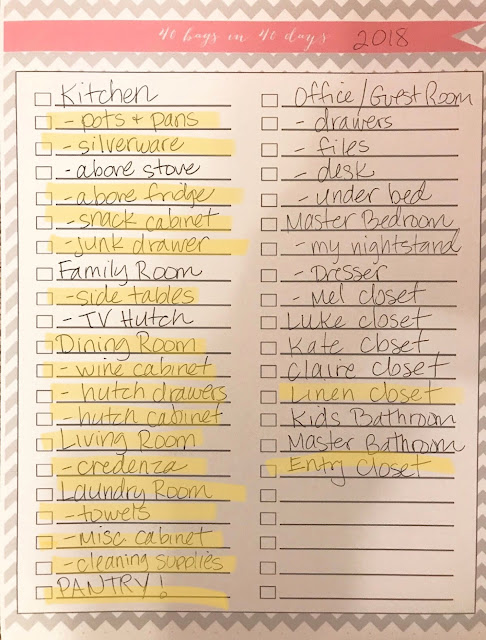 40 bags in 40 days 2018
Kitchen
- pots + pans
- silverware
- above stove
- above fridge
- snack cabinet
- junk drawer
Family Room
- side tables
- TV Hutch
Dining Room
- wine cabinet
- hutch drawers
- hutch cabinet
Living Room
- credenza
Laundry Room
- towels
- misc cabinet
- cleaning supplies
PANTRY!
Office/Guest Room
- drawers
- files
- desk
- under bed
Master Bedroom
- my nightstand
- Dresser
- Mel closet
Luke closet
Kate closet
Claire closet
Linen closet
Kids Bathroom
Master Bathroom
Entry Closet